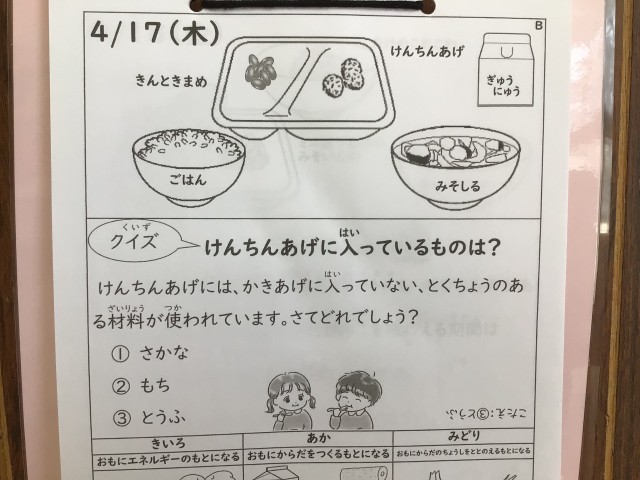 B
4/17(木)
けんちんあげ
きんときまめ
ぎゅう
にゅう
ごはん
みそしる
くいず
クイズ
はい
けんちんあげに入っているものは?
はい
けんちんあげには、かきあげに入っていない、とくちょうのあ
ざいりょう つか
る材料が使われています。さてどれでしょう?
① さかな
② もち
③ とうふ
こたえ:③とうふ
きいろ あか みどり
おもにエネルギーのもとになる おもにからだをつくるもとになる おもにからだのちょうしをととのえるもとになる